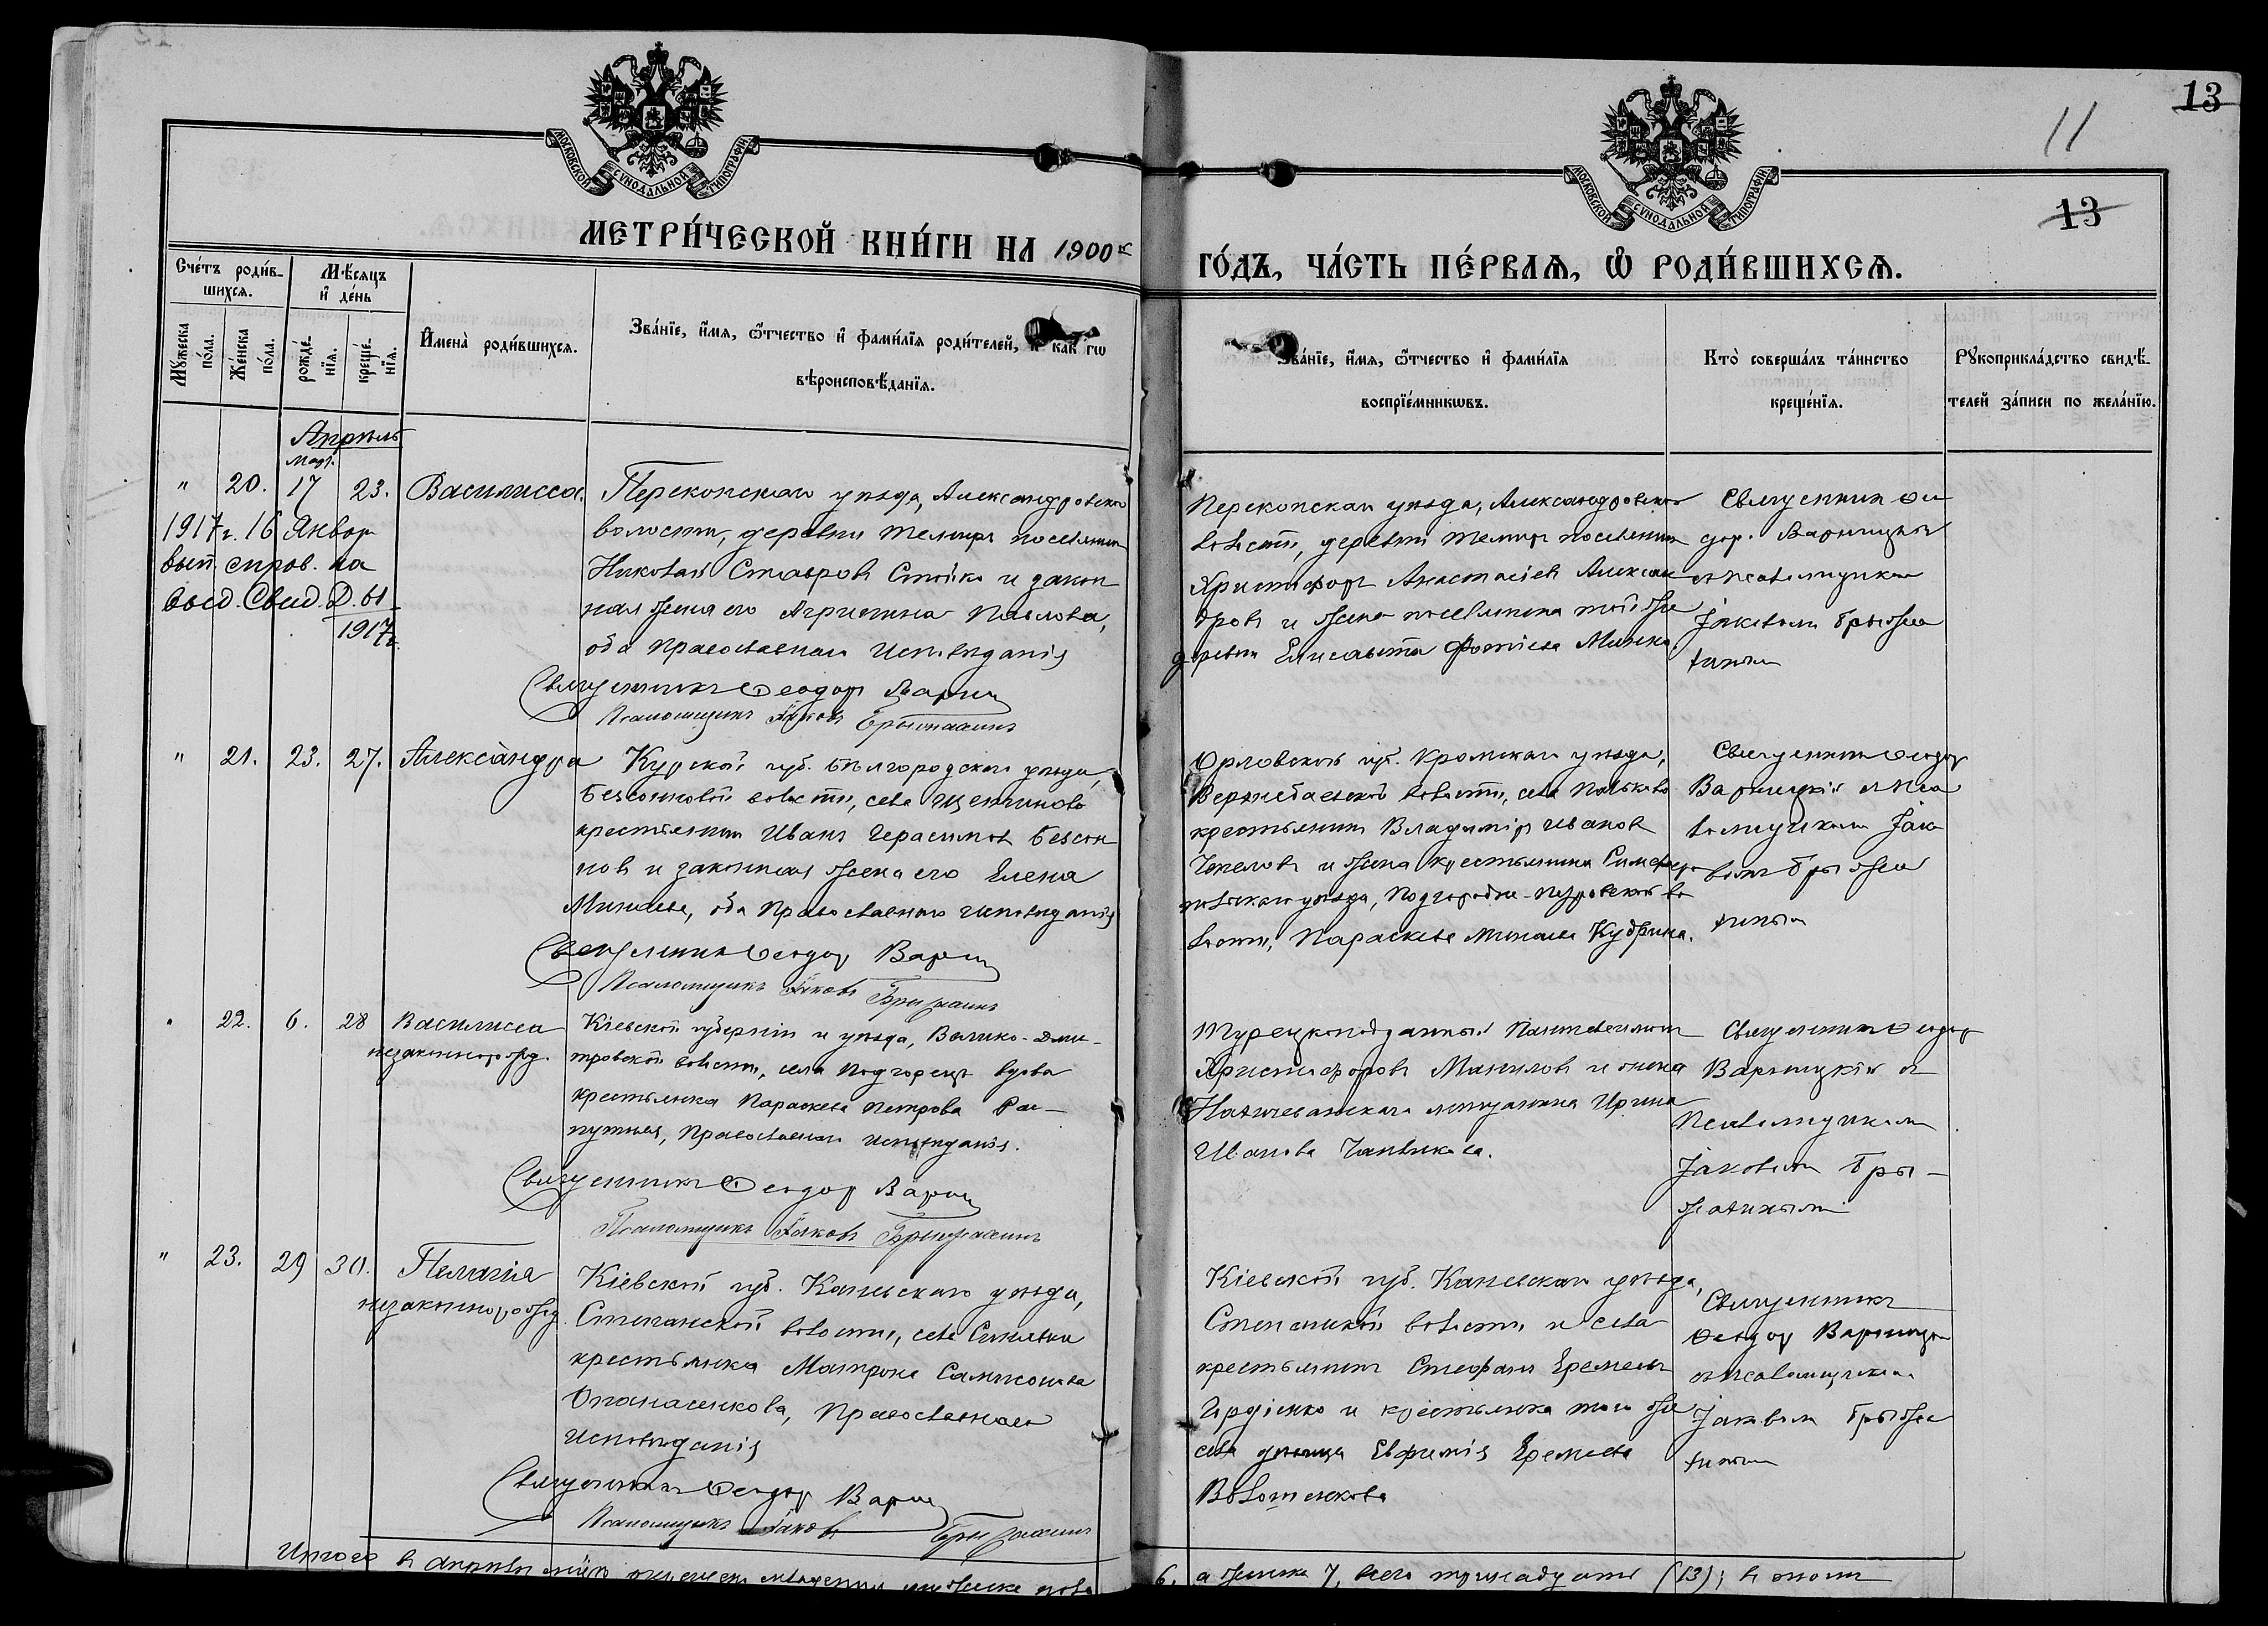 13
11
13
МОСКОВСКОЙ СѴНОДАЛЬНОЙ ТИПОГРАФІИ
МОСКОВСКОЙ СѴНОДАЛЬНОЙ ТИПОГРАФІИ
МЕТРИ́ЧЕСКОЙ КНИ́ГИ НА 1900й
ГО́ДЪ, ЧА́СТЬ ПЕ́РВАѦ, Ѡ РОДИ́ВШИХСѦ.
Сче́тъ роди́в-
шихсѧ.
Мѣ́сѧцъ
и҆ де́нь
Мꙋ́жеска
по́ла.
Же́нска
по́ла.
рожде́-
нїѧ.
креще́-
нїѧ.
И҆мена̀ роди́вшихсѧ.
Зва́нїе, и҆́мѧ, ѻ҆́тчество и҆ фами́лїѧ роди́телей,
вѣроисповѣ́данїѧ.
Зва́нїе, и҆́мѧ, ѻ҆́тчество и҆ фами́лїѧ
воспрїе́мникѡвъ.
Кто̀ соверша́лъ та́инство
креще́нїѧ.
Рꙋкоприкла́дство свидѣ́-
телей за́писи по жела́нїю.
Апрѣль
Март.
" 20. 17 23. Василисса.
1917 г. 16 Янвор
вып. справ. на
выд. Свид.
1917 г.
Перекопскаго уѣзда, Александровской
волости, деревни Темиръ поселянин
Николай Ставровъ Стойко и закон
ная жена его Агрипина Павлова,
оба Православнаго Исповѣданія
Священникъ Ѳеодоръ Варниц
Псаломщикъ Іаковъ Брыжахинъ
Перекопскаго уѣзда, Александровской
волости, деревни Темиръ поселянин
Христофоръ Анастасіевъ Алексан
дровъ и жена поселянина той же
деревни Елисавета Фотіева Минко
Священник Ѳе
дор. Варницкій
с псаломщиком
Іаковом Брыжа
хиным
" 21. 23. 27. Алекса́ндра
Курской губ. Бѣлгородскаго уѣзда,
Безсоновой волости, села Щетиново
крестьянин Иванъ Герасимовъ Безсон
новъ и законная жена его Елена
Минаева, оба Православнаго Исповѣданія
Священник Ѳеодор Варниц
Псаломщикъ Іаковъ Брыжахинъ
Орловской губ. Кромскаго уѣзда,
волости, села
крестьянин Владиміръ Иванов
и жена крестьянина Симферо
польскаго уѣзда, Подгородне-Петровской во
лости, Параскева Минаева Кудрина.
Священник Ѳеодор
Варницкій с Пса
ломщиком Іако
вом Брыжа
хиным
" 22. 6. 28 Василисса
незаконнорожд.
Кіевской губерніи и уѣзда, Велико-Дми-
тровской волости, села Подгорецъ вдова
крестьянка Параскева Петрова Рас-
путная, Православнаго исповѣданія.
Священникъ Ѳеодор Варниц
Псаломщикъ Іаковъ Брыжахинъ
Турецкоподданный Пантелеимон
Христофоровъ Манилов и жена
Нахичеванскаго мещанина Ирина
Иванова
Священник Ѳеодор
Варницкій с
Псаломщиком
Іаковом Бры-
жахиным
" 23. 29 30. Пелагія
незаконнорожд.
Кіевской губ. Каневскаго уѣзда,
Степанской волости, села Синявки
крестьянка Матрона Сампсонова
Опанасенкова, Православнаго
Исповѣданія
Священник Ѳеодор Варниц
Псаломщикъ Іаковъ Брыжахинъ
Кіевской губ. Каневскаго уѣзда,
Степанской волости и села
крестьянин Стефан Еремеев
Гордіенко и крестьянка того же
села дѣвица Евфимія Еремеева
Волошенкова
Священникъ
Ѳеодор Варницк
с псаломщиком
Іаковом Брыжа
хиным
Итого в апрѣлѣ мужеска пола
6. а женска 7, всего тринадцать (13);